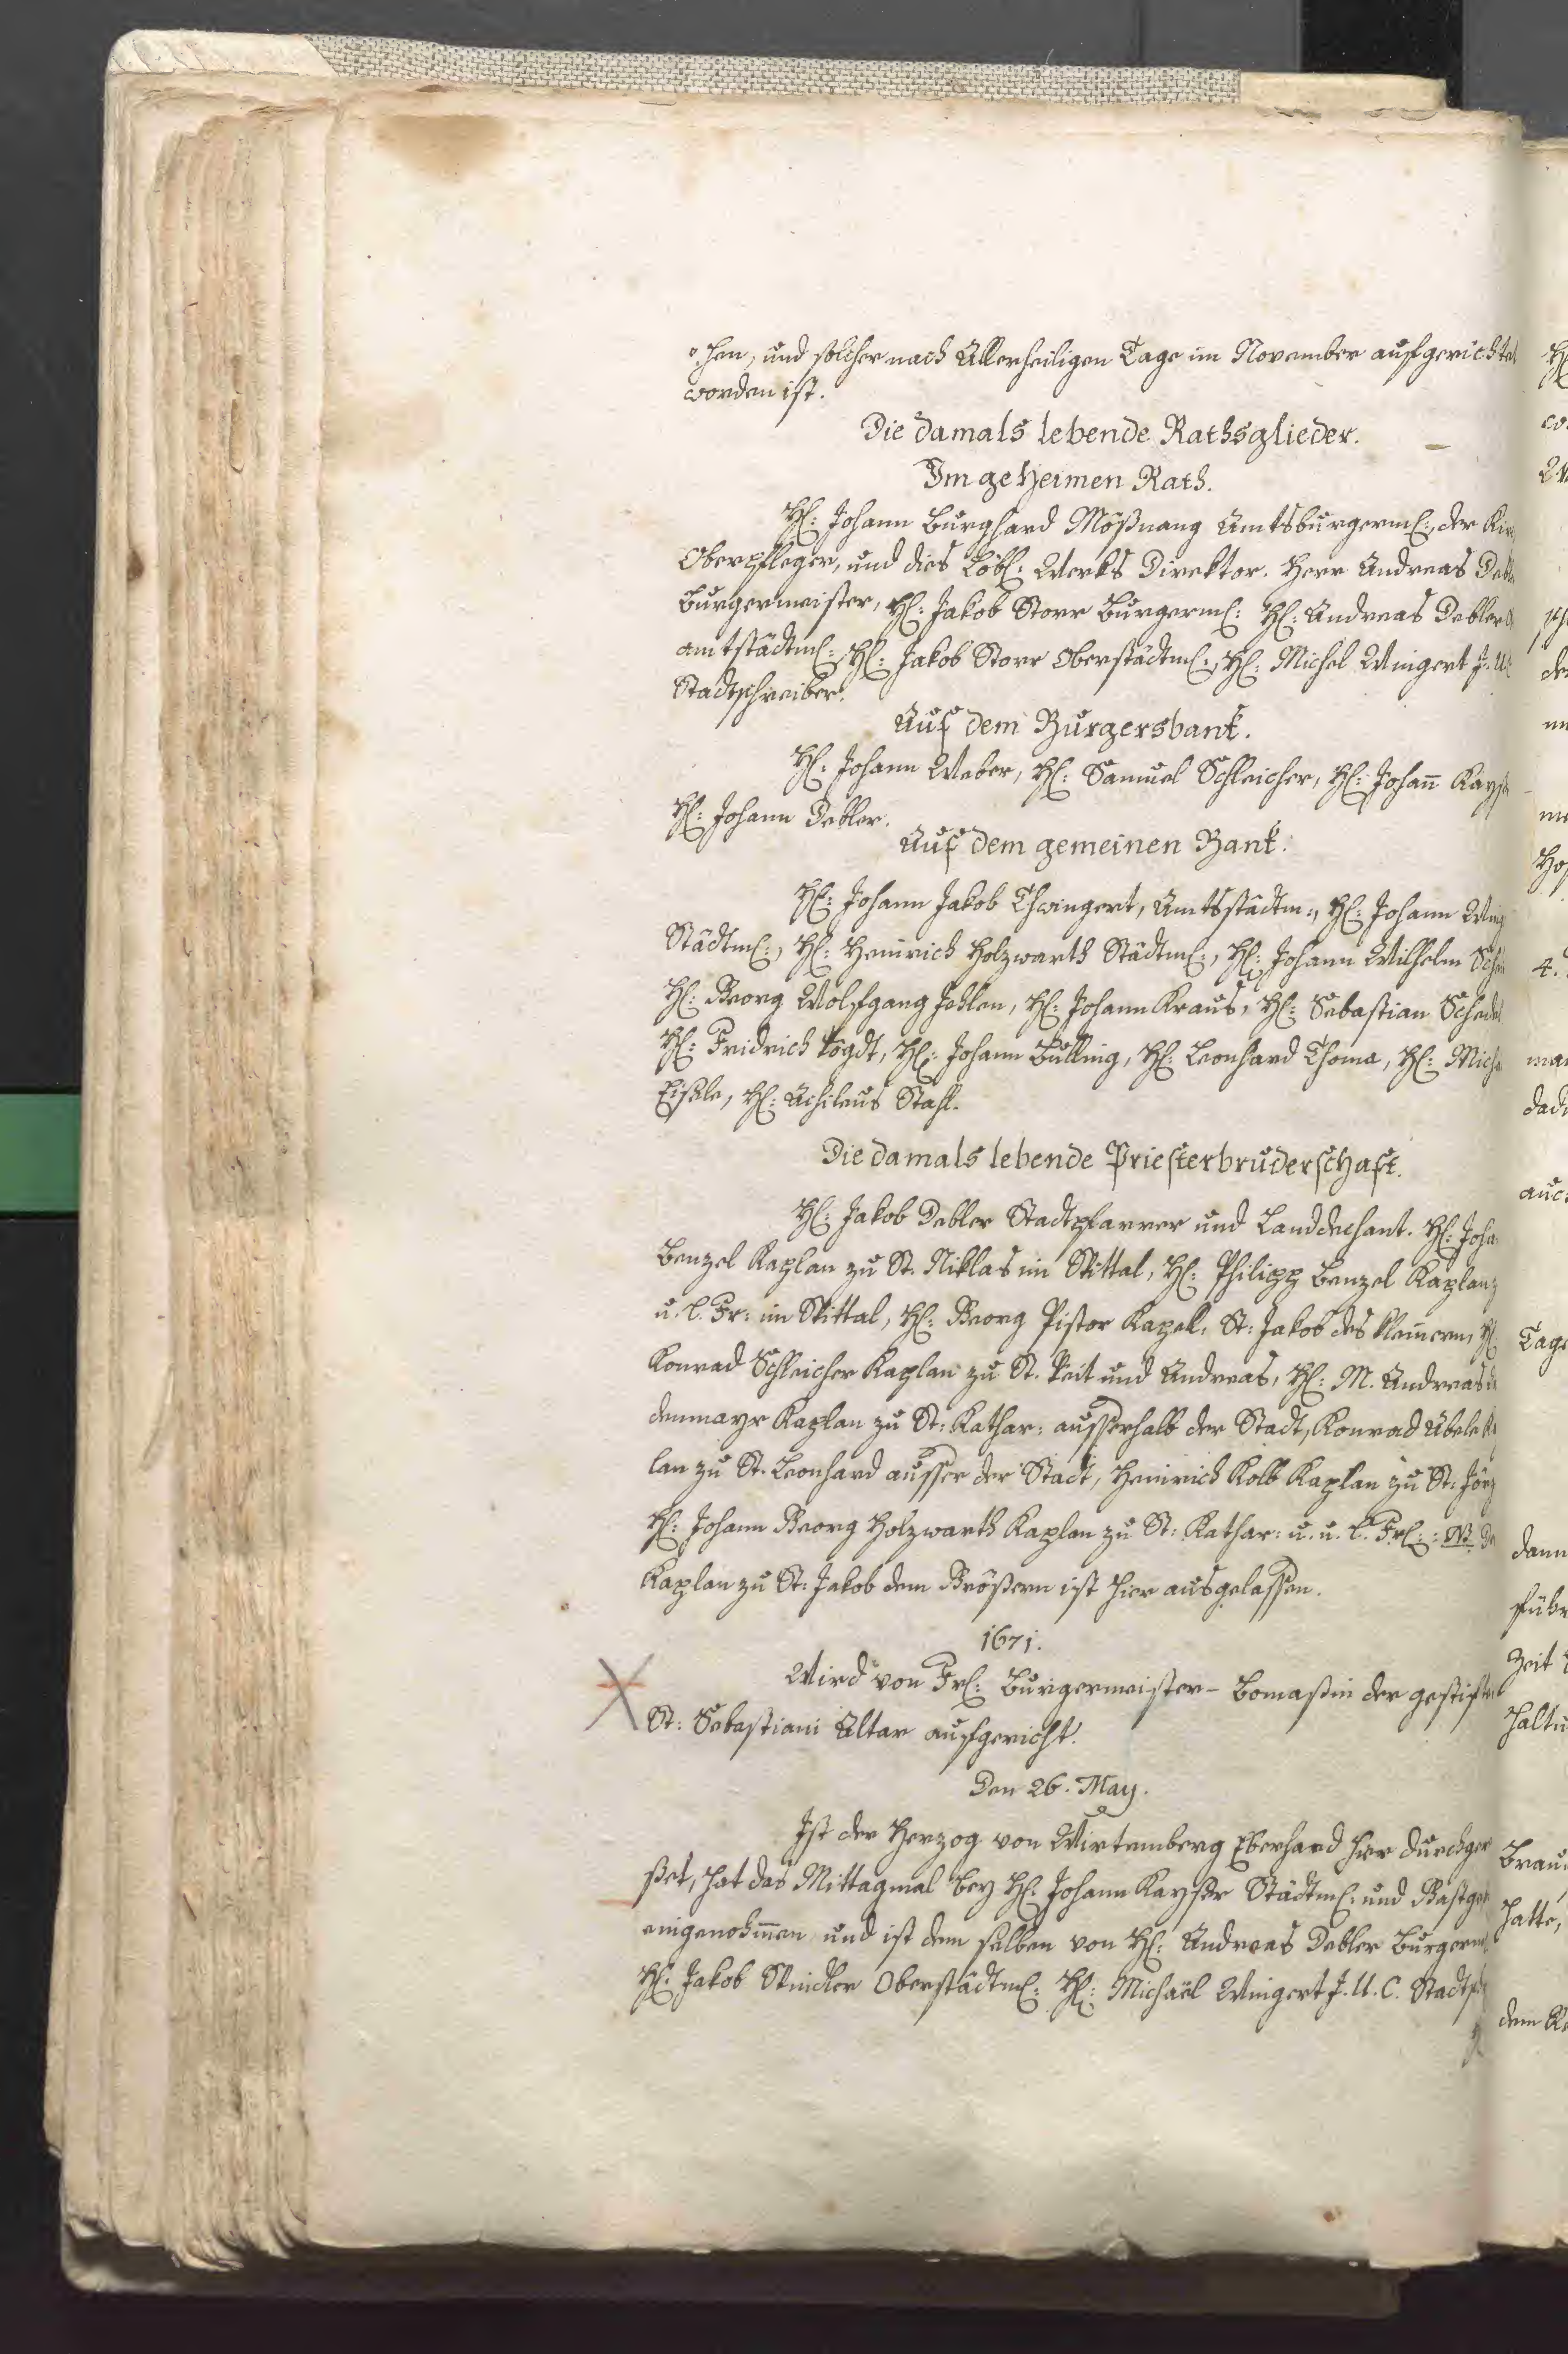 hen, und solcher nach Allerheiligen Tage im November aufgerichtet
worden ist.
Die damals lebende Rathsglieder.
Im geheimen Rath.
H: Johann Burghard Mößnang Amtsburgerm:, der
Oberpfleger, und dies Löbl: Werks Direktor. Herr Andreas
Burgermeister, H: Jakob Storr Burgerm: H: Andreas Debler
amtstädtm:, H: Jakob Storr Oberstädtm:, H: Michel Wingert J. U.
Stadtschreiber.
Auf dem Burgersbank.
H: Johann Weber, H: Samuel Schleicher, H: Johann
H: Johann Debler.
Auf dem gemeinen Bank.
H: Johann Jakob Thwingert, Amtsstädtm:, H: Johann
Städtm:, H: Heinrich Holzwarth Städtm:, H: Johann Wilhelm
H: Georg Wolfgang Jehlen, H: Johann Kraus, H: Sebastian
H: Fridrich Vogdt, H: Johann Bulling, H: Leonhard Thoma, H:
Eißele, H: Achileus Stahl.
Die damals lebende Priesterbruderschaft.
H: Jakob Debler Stadtpfarrer und Landdechant. H:
Benzel Kaplan zu St. Niklas im Spittal, H: Philipp Benzel Kaplan
u. l. Fr: im Spittal, H: Georg Pistor Kapel: St: Jakob des kleinern, H:
Konrad Schleicher Kaplan zu St. Veit und Andreas, H: M. Andreas
denmayr Kaplan zu St: Kathar: ausserhalb der Stadt, Konrad Übele
lan zu St. Leonhard ausser der Stadt, Heinrich Kolb Kaplan zu St: Jörg
H: Johann Georg Holzwarth Kaplan zu St: Kathar: u. u. l. Fr: NB.
Kaplan zu St: Jakob dem Größern ist hier ausgelassen.
1671.
Wird von Fr: Burgermeister- Bomaßin der
St: Sebastiani Altar aufgericht.
Den 26. May.
Ist der Herzog von Wirtemberg Eberhard hier
ßet, hat das Mittagmal bey H: Johann Kayser Städtm: und
eingenohmen und ist dem selben von H: Andreas Debler Burgerm:
H: Jakob Spindler Oberstädtm: H: Michaël Wingert J. U. C.